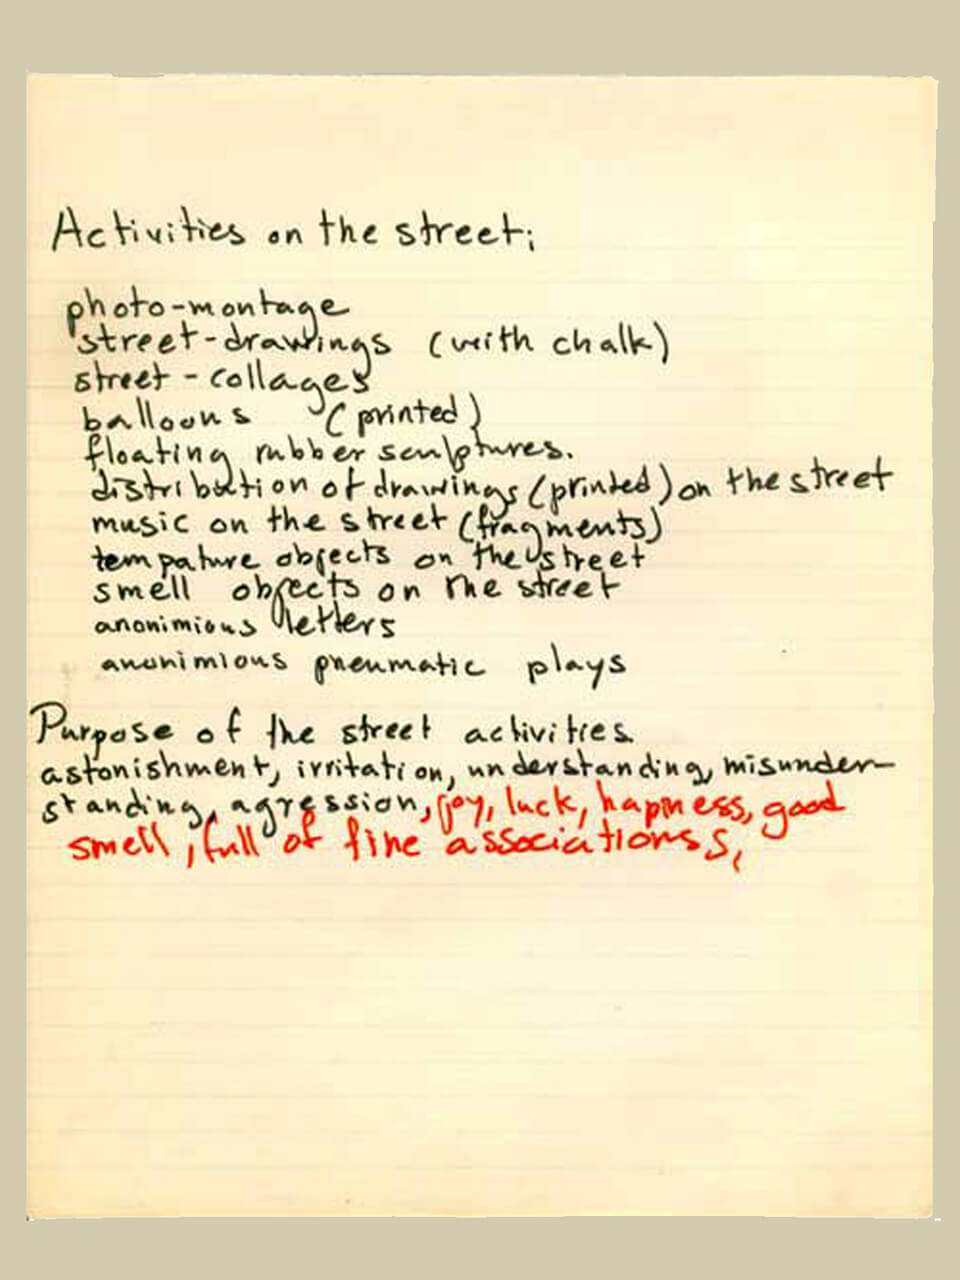 Activities on the street;
photo-montage
street-drawings (with chalk)
street-collages
balloons (printed)
floating rubber sculptures.
distribution of drawings (printed) on the street
music on the street (fragments)
tempature objects on the street
smell objects on the street
anonimious letters
anonimious pneumatic plays
Purpose of the street activities.
astonishment, irritation, understanding, misunder-
standing, agression, joy, luck, hapiness, good
smell, full of fine associationss,